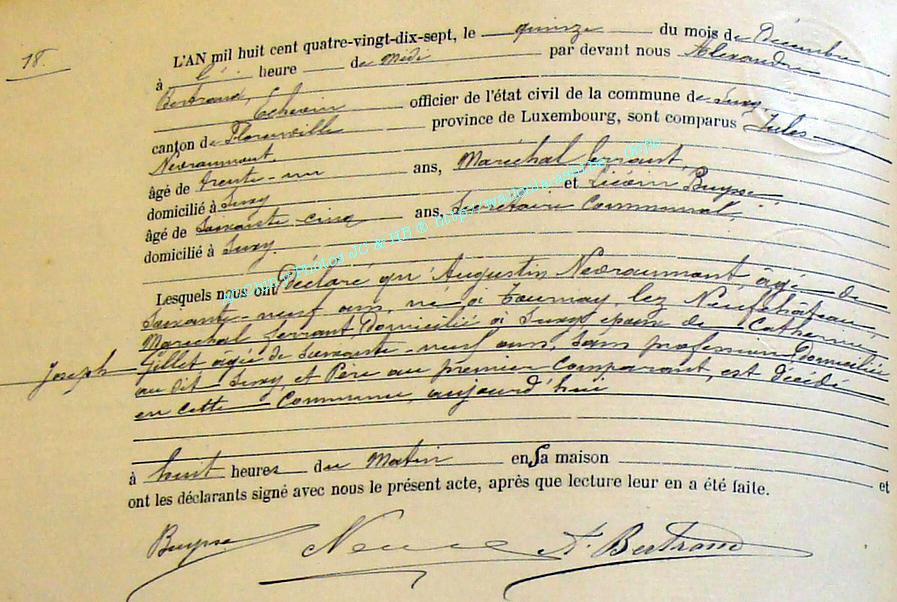 18.
L'AN mil huit cent quatre-vingt-dix-sept, le quinze du mois de Décembre
à heure de Midi par devant nous Alexandre
Bertrand, Echevin officier de l'état civil de la commune de Suxy,
canton de Florenville province de Luxembourg, sont comparus Jules
Nevraumont
âgé de trente-un ans, Maréchal ferrant,
domicilié à Suxy et Liévin Buysse
âgé de Soixante-cinq ans, Secrétaire Communal,
domicilié à Suxy.
Lesquels nous ont Déclaré qu'Augustin Nevraumont, âgé de
Soixante-neuf ans, né à Tournay, lez Neufchâteau,
Maréchal ferrant, Domicilié à Suxy, époux de Catherine,
Joseph
Gillet âgée de Soixante-neuf ans, Sans profession Domiciliée
au dit Suxy, et Père au premier Comparant, est décédé
en cette Commune, aujourd'hui
à huit heures du Matin en Sa maison et
ont les déclarants signé avec nous le présent acte, après que lecture leur en a été faite.
Buysse A. Bertrand